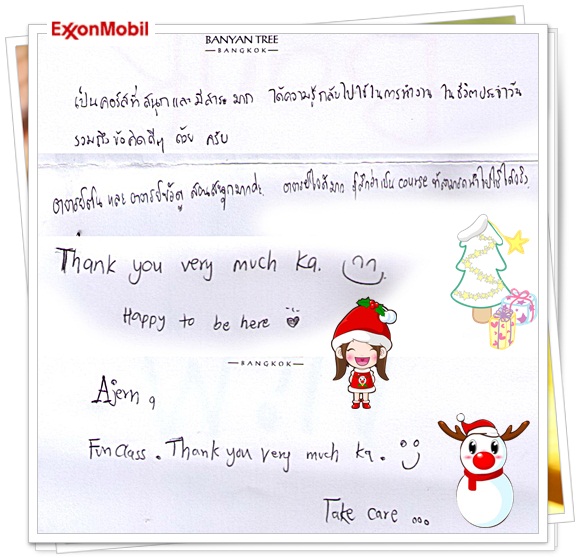 ExxonMobil
BANYAN TREE
— BANGKOK —
เป็นคอร์สที่สนุกและมีสาระมาก ได้ความรู้กลับไปใช้ในการทำงาน ในชีวิตประจำวัน
รวมถึงข้อคิดดีๆ ด้วย ครับ
และ อาจารย์ สอนสนุกมากค่ะ. อาจารย์ รู้สึกว่าเป็น course ที่สามารถนำไปใช้ได้จริง.
Thank you very much ka.
Happy to be here
— BANGKOK —
Ajern ๆ
Fun class. Thank you very much ka.
Take care ...